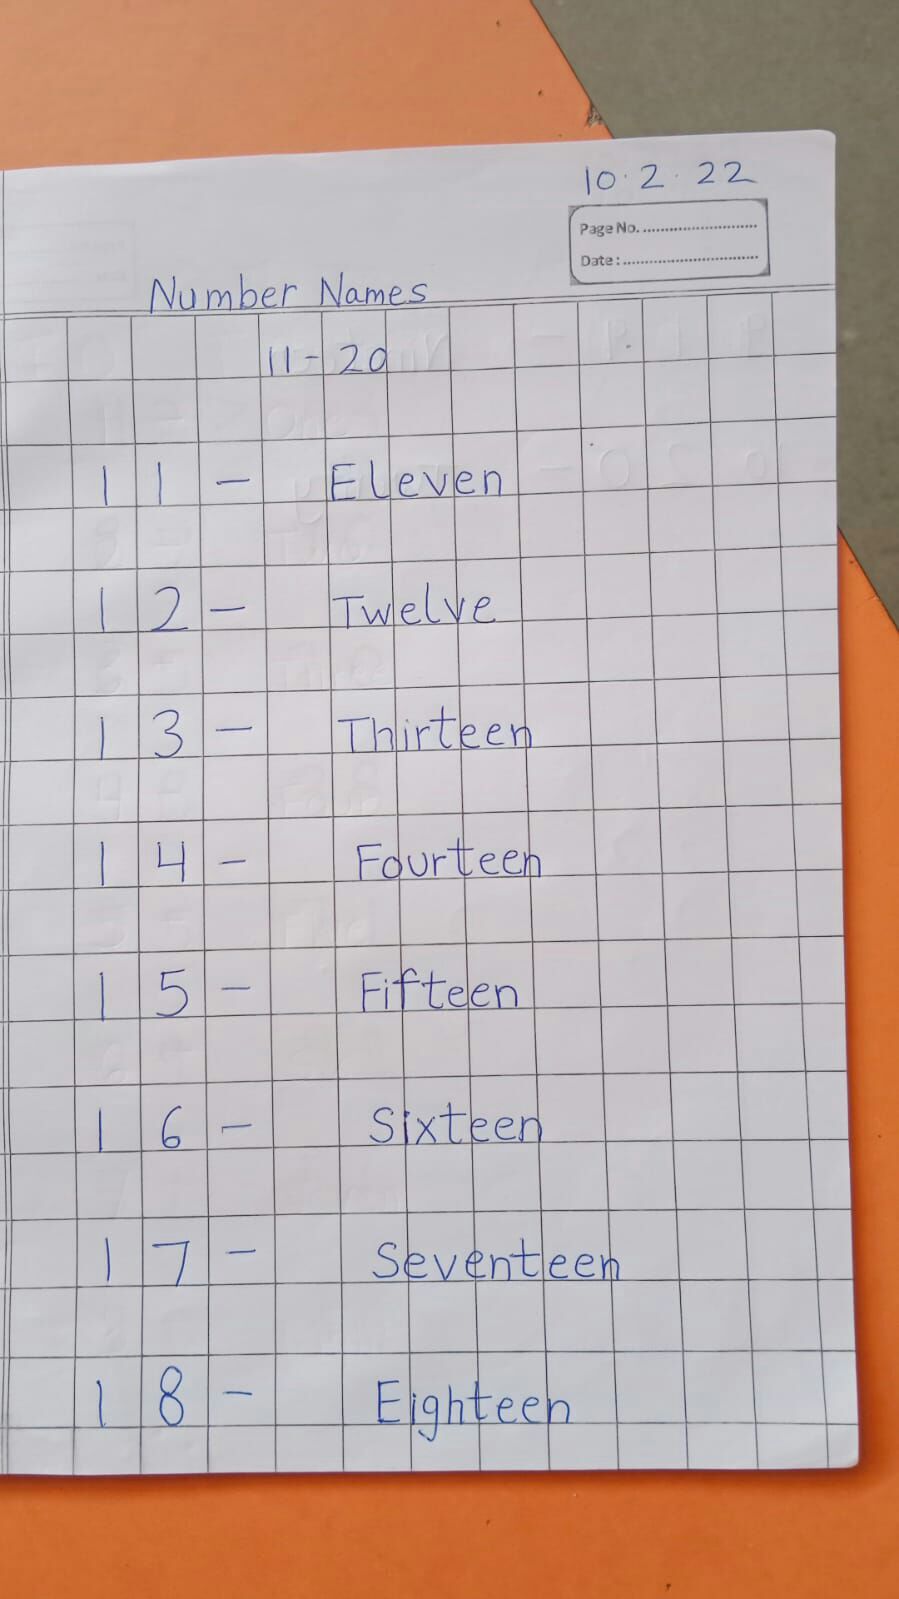 10.2.22
Page No. ..............................
Date : ..................................
Number Names
11-20
11 - Eleven
12 - Twelve
13 - Thirteen
14 - Fourteen
15 - Fifteen
16 - Sixteen
17 - Seventeen
18 - Eighteen